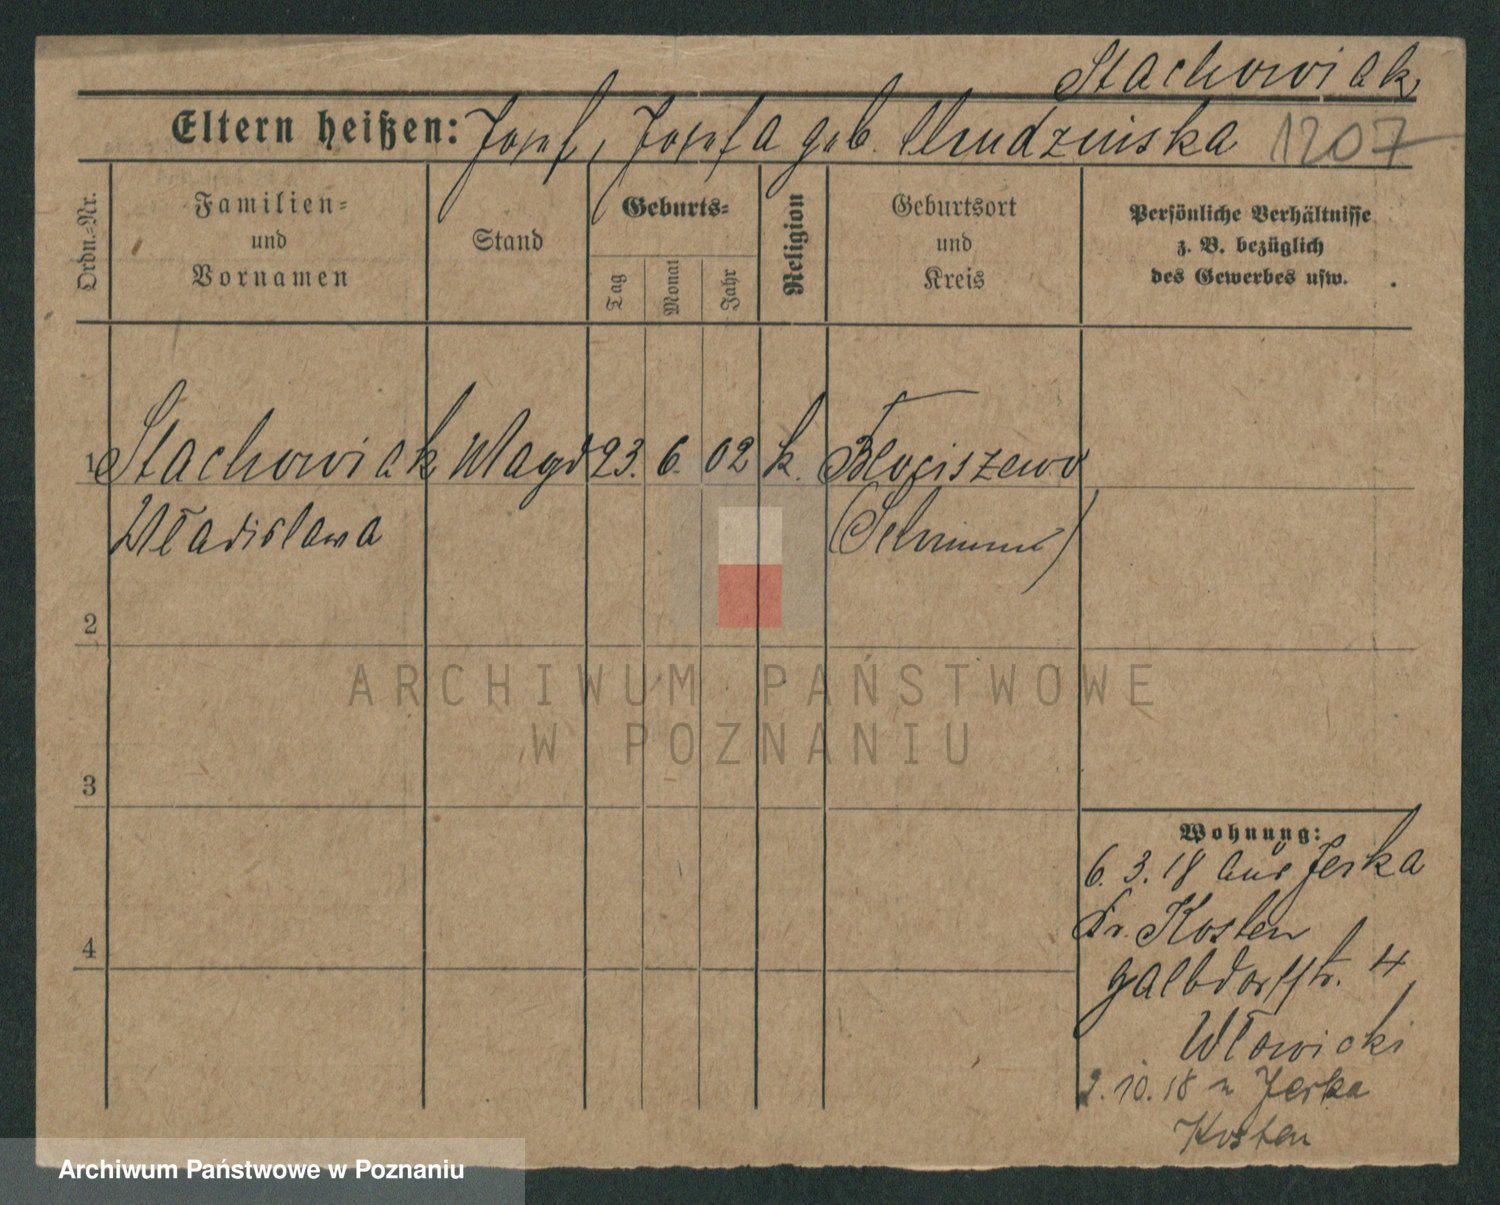 Stachowiak
Eltern heißen: Josef, Josefa geb. Mrudzińska 1207
Ordn.-Nr.
Familien-
und
Vornamen
Stand
Geburts-
Tag
Monat
Jahr
Religion
Geburtsort
und
Kreis
Persönliche Verhältnisse
z. B. bezüglich
des Gewerbes usw.
1 Stachowiak Magd 23. 6. 02 k. Błociszewo
Władislawa (Schrimm)
2
3
4
Wohnung:
6. 3. 18 aus Jerka
Kr. Kosten
4
Włowicki
2. 10. 18 n Jerka
Kosten
ARCHIWUM PAŃSTWOWE
W POZNANIU
Archiwum Państwowe w Poznaniu